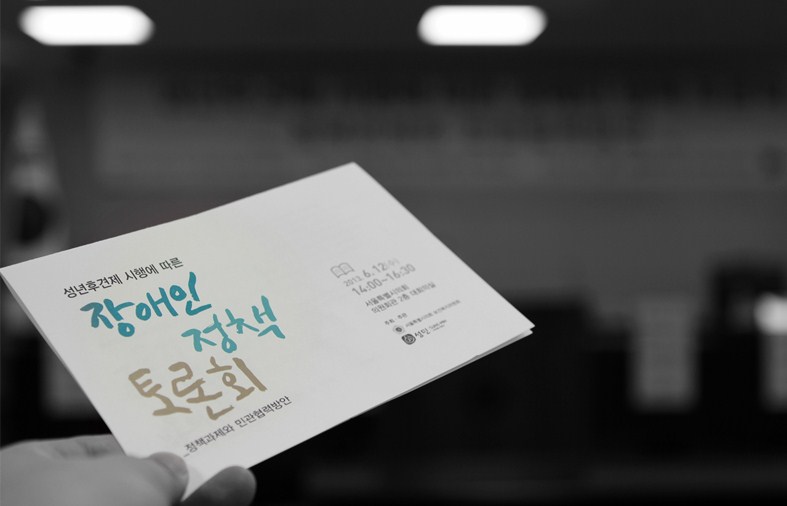 성년후견제 시행에 따른
장애인
정책
토론회
_정책과제와 민관협력방안
2013. 6.12(수)
14:00~16:30
서울특별시의회
의원회관 2층 대회의실
주최·주관